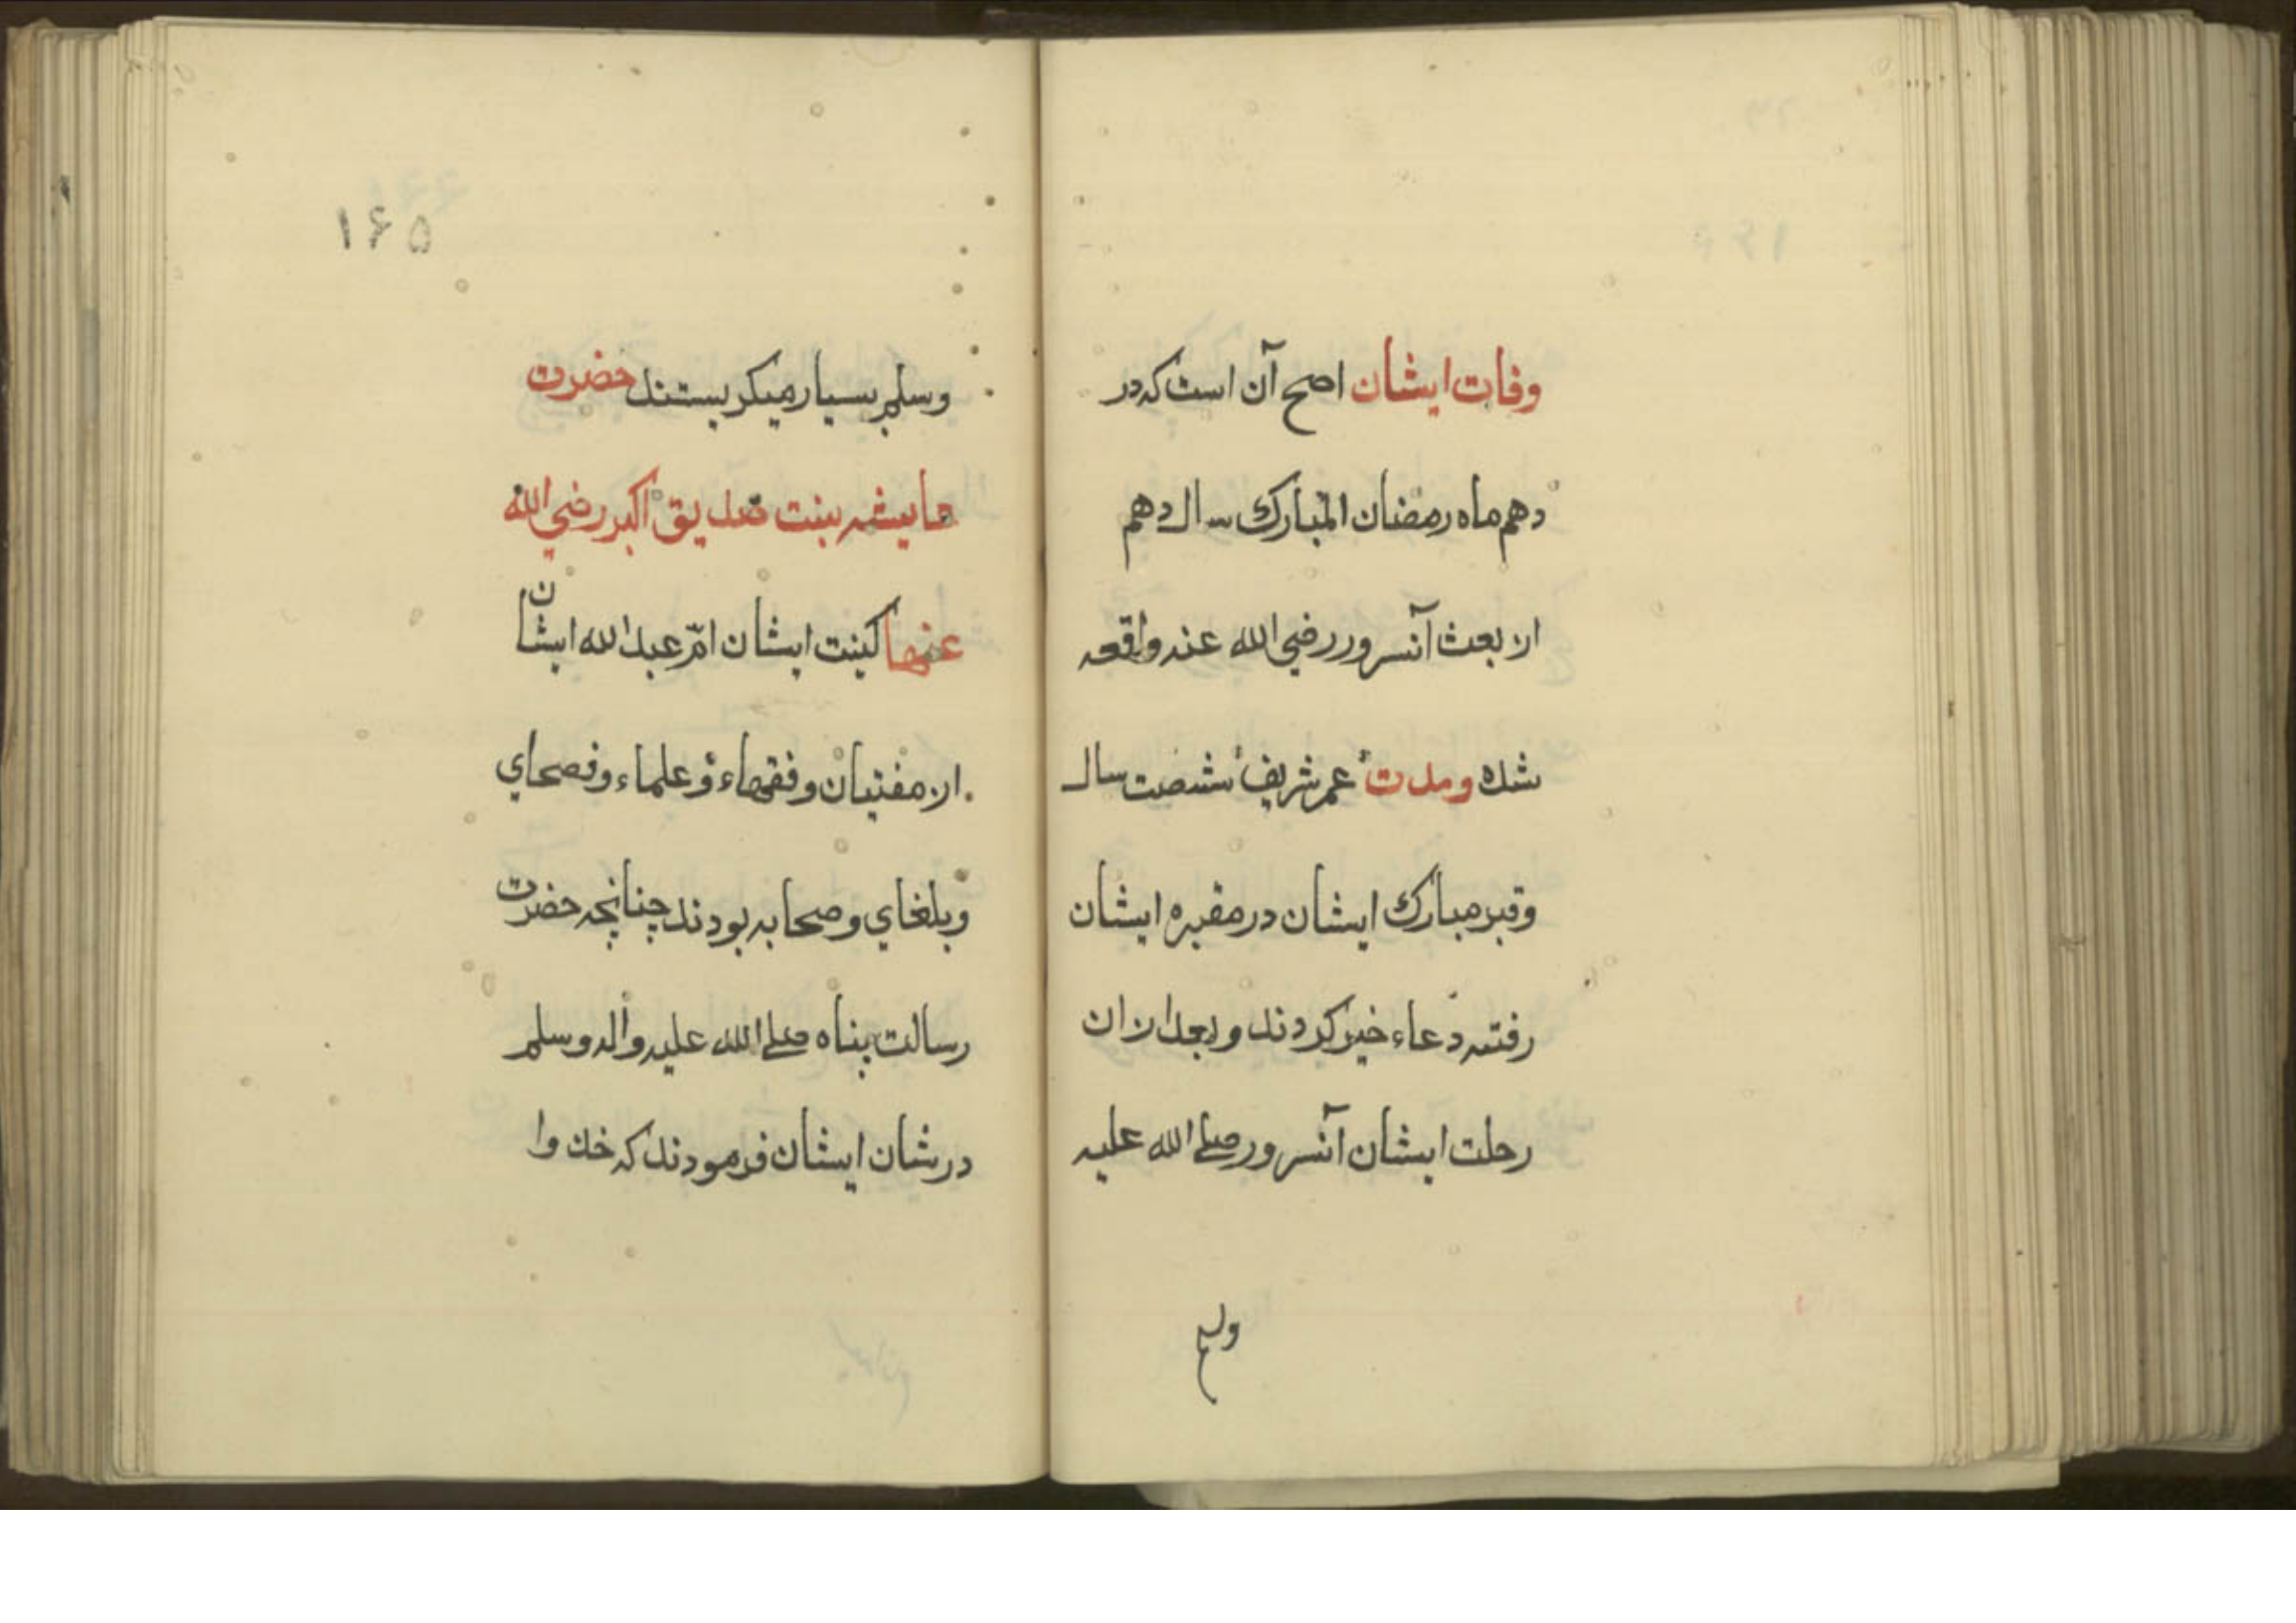 وفات ایشان اصح آن است که در
دهم ماه رمضان المبارک سال دهم
از بعث آنسرور رضي الله عنه واقعه
شده و مدت عمر شریف شصت سال
و قبر مبارک ایشان در مقبره ایشان
رفته دعاء خیر کردند و بعد از ان
رحلت ایشان آنسرور صلے الله علیه
وسلم
۱۶۵
وسلم بسیار میکریستند حضرت
عایشه بنت صدیق اکبر رضي الله
عنها کنیت ایشان امّ عبد الله ایشان
از مفتیان و فقهاء و علماء و فصحاي
و بلغاي و صحابه بودند چنانچه حضرت
رسالت پناه صلے الله علیه واله وسلم
در شان ایشان فرمودند که خذوا